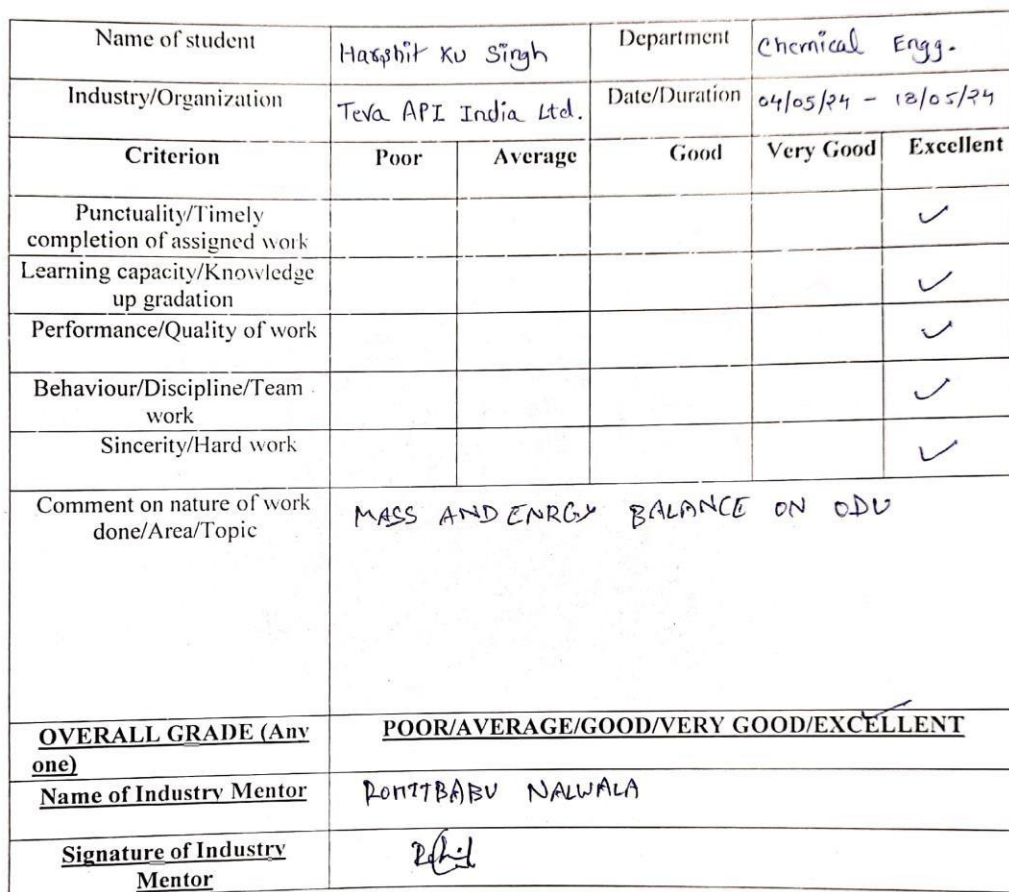 Name of student Harshit Ku Singh Department Chemical Engg.
Industry/Organization Teva API India Ltd. Date/Duration 04/05/24 - 18/05/24
Criterion Poor Average Good Very Good Excellent
Punctuality/Timely
completion of assigned work ✓
Learning capacity/Knowledge
up gradation ✓
Performance/Quality of work ✓
Behaviour/Discipline/Team
work ✓
Sincerity/Hard work ✓
Comment on nature of work
done/Area/Topic
MASS AND ENRGY BALANCE ON ODU
OVERALL GRADE (Any
one)
POOR/AVERAGE/GOOD/VERY GOOD/EXCELLENT ✓
Name of Industry Mentor ROHITBABU NALWALA
Signature of Industry
Mentor
Rohit